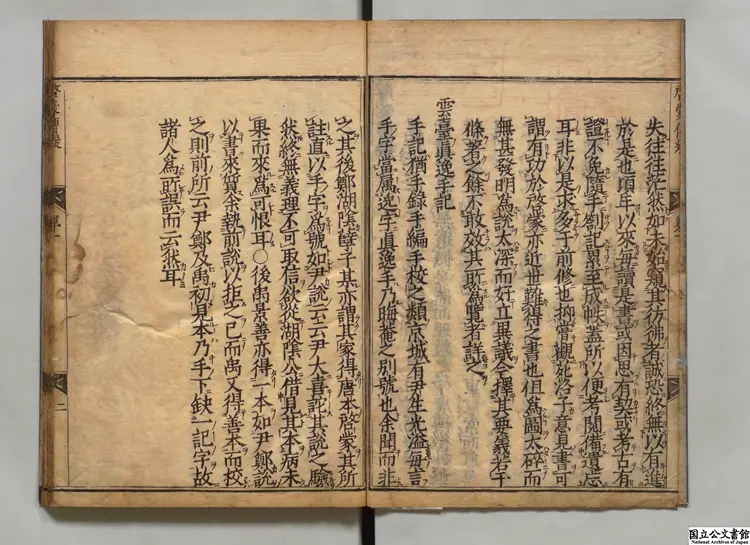 失往往茫然如未始窺其彷彿者誠恐終無以有進
於是也頃年以來每讀是書或因思有契或考古有
證不免隨手劄記累至成帙蓋所以便考閱備遺忘
耳非以是求多于前修也抑嘗觀死洛子意見書可
謂有功於啓蒙亦近世難得之書也但為圖太碎而
無甚發明為說太深而好立異議今擇其要義若干
條著之餘不敢效其所為覽者詳之
雲臺眞逸手記
手記猶手錄手編手校之類京城有尹生光溢每言
手字當属逸字眞逸手乃晦菴之別號也余聞而非
之其後鄭湖陰孽子某亦謂其家得唐本啓蒙其所
註直以手字為號如尹說云云尹大喜記其說之驗
然終無義理不可取信欲從湖陰公借見其本病未
果而來為可恨耳○後禹景善亦得一本如尹鄭說
以書來質余執前說以非之已而禹又得善本而校
之則前所云尹鄭及禹初見本乃手下缺一記字故
諸人為所誤而云然耳
序
二
国立公文書館
National Archives of Japan